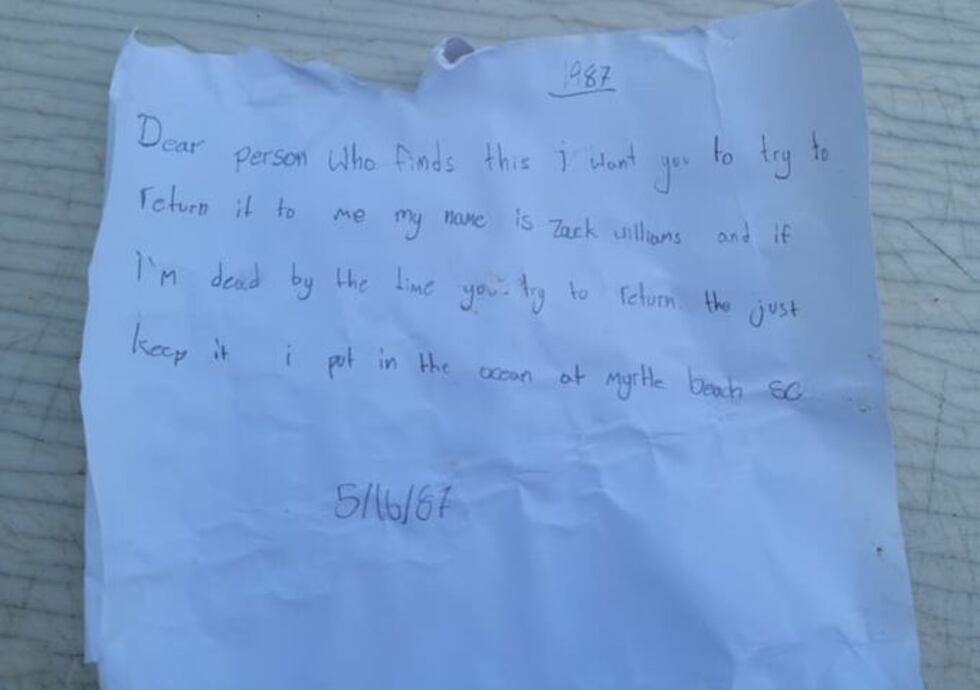 1987
Dear person who finds this i want you to try to
return it to me my name is Zack williams and if
I'm dead by the time you try to return. the just
keep it i put in the ocean at Myrtle beach SC
5/16/87